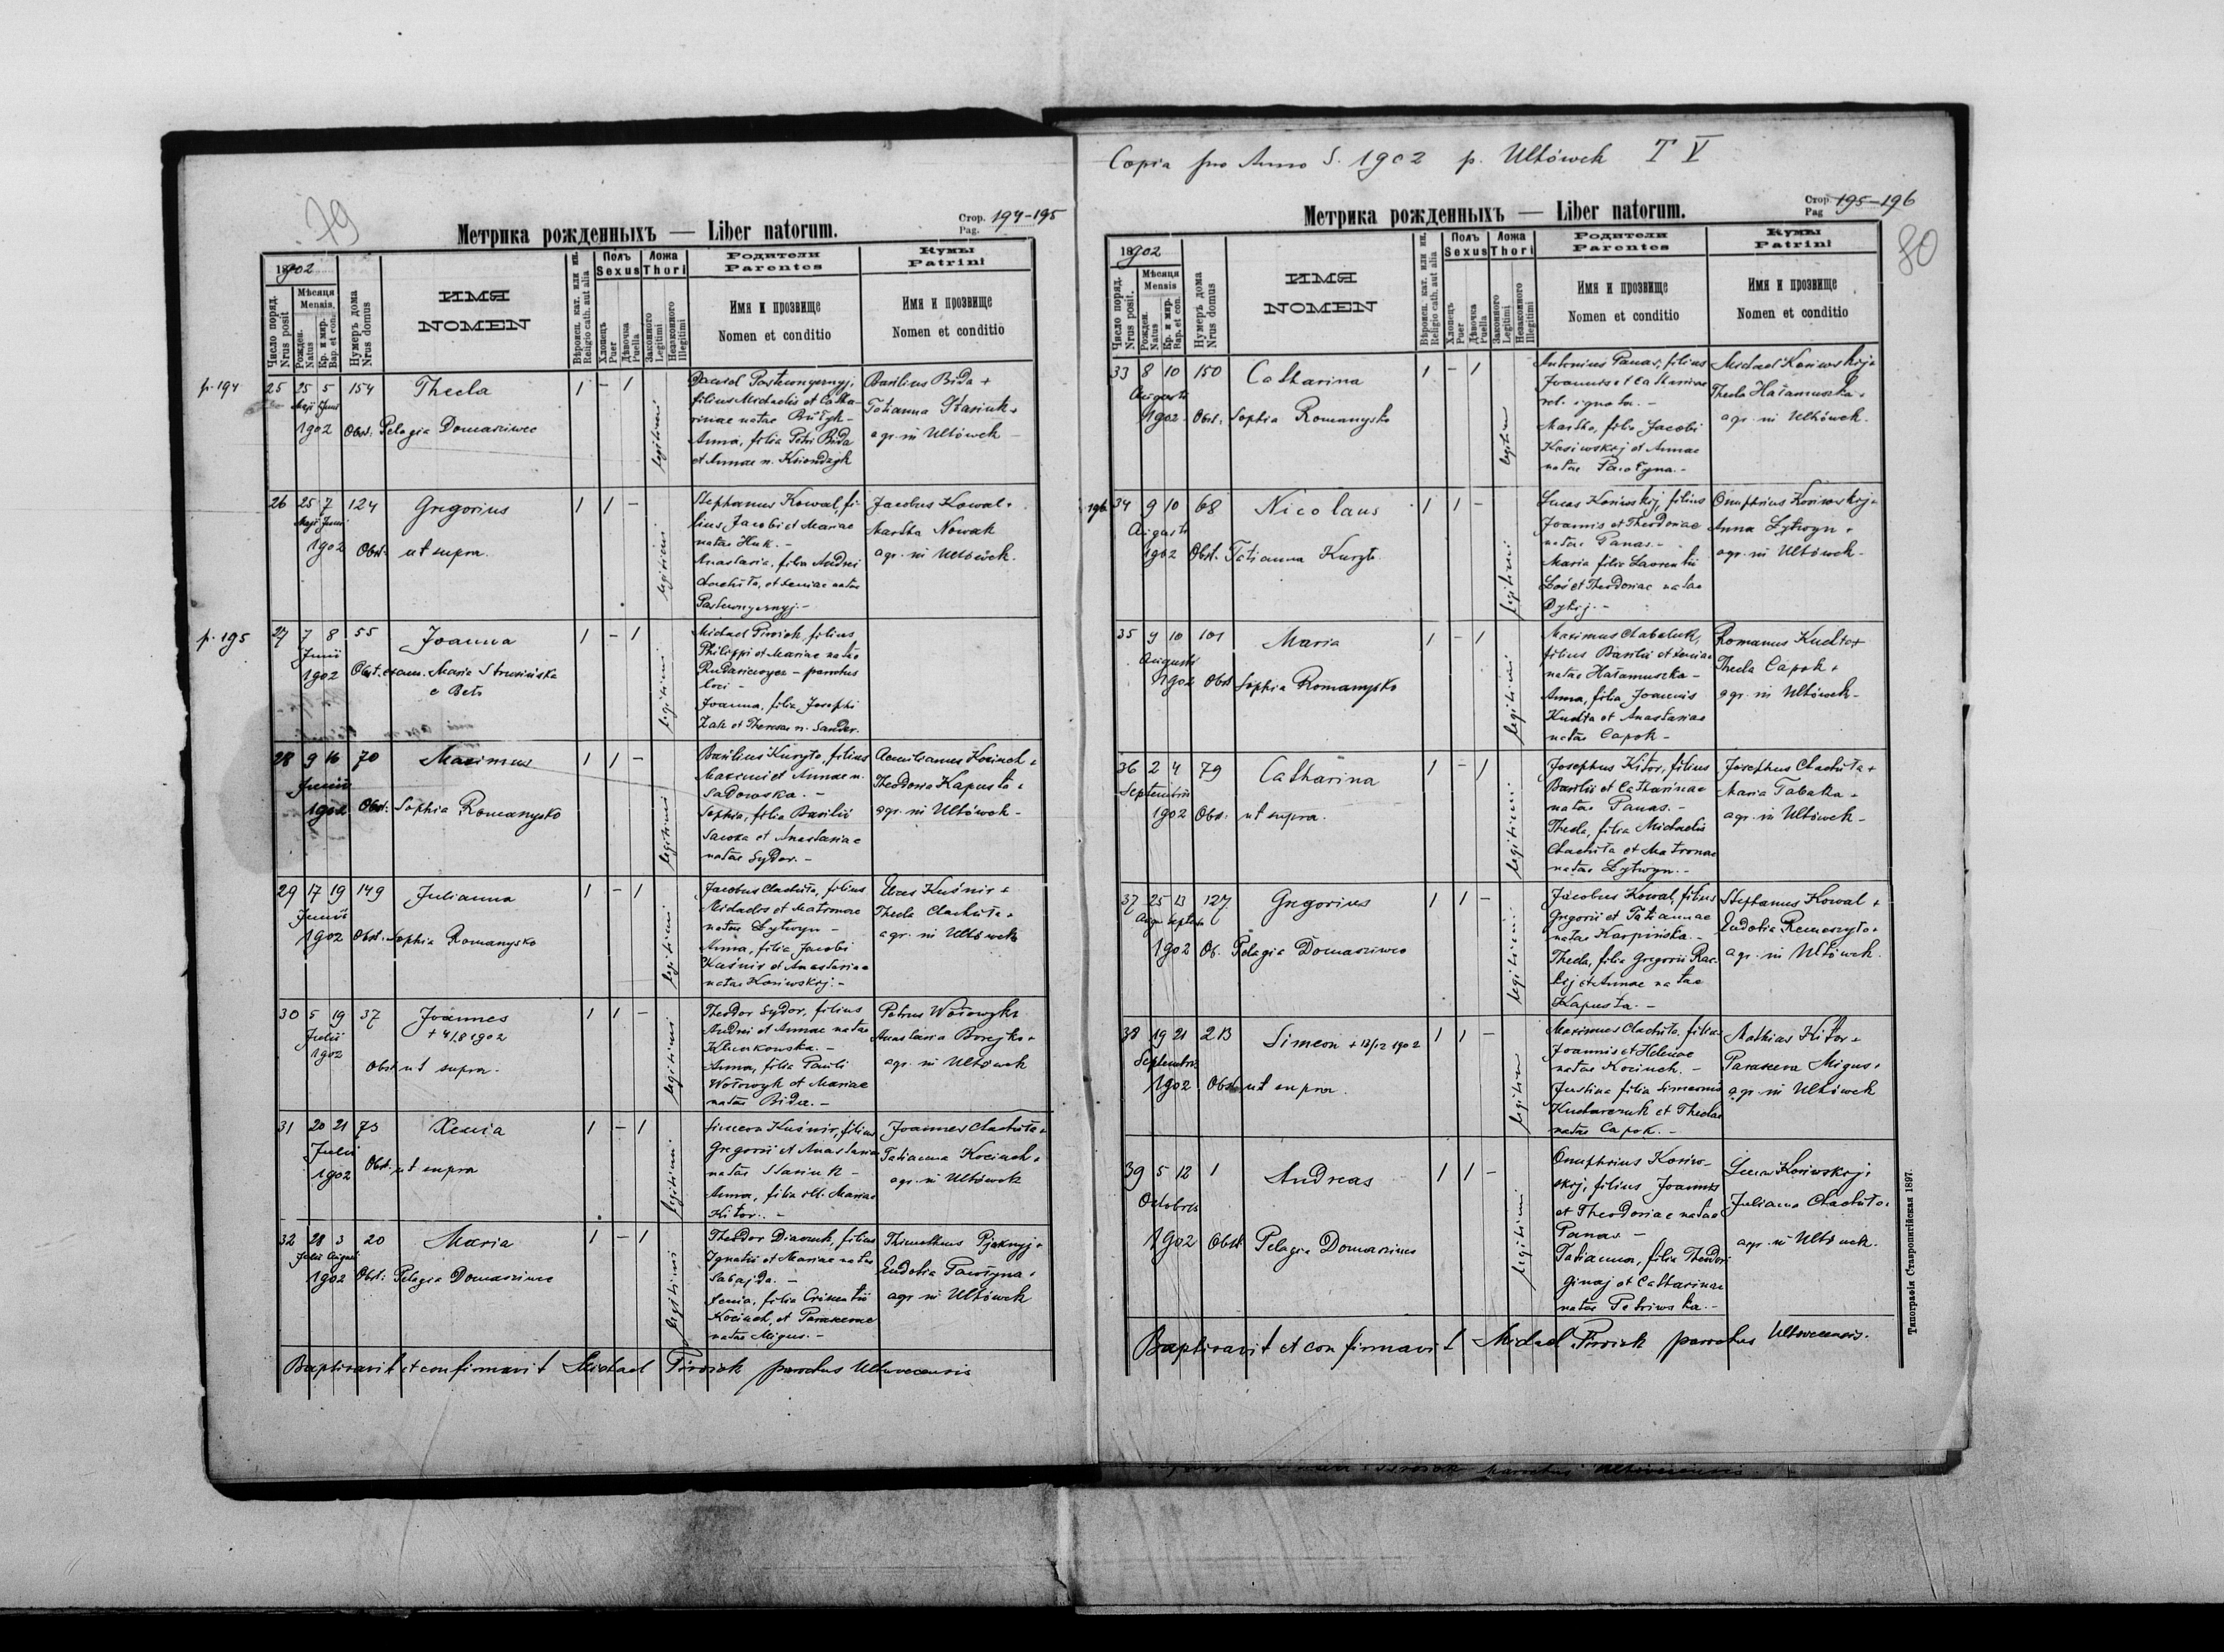 79
Метрика рожденныхъ — Liber natorum.
Стор. Pag. 194-195
1902
Число поряд. Nrus posit
Мѣсяця Mensis
Рожден. Natus
Кр. и мир. Bap. et con.
Нумеръ дома Nrus domus
ИМЯ
NOMEN
Вѣроисп. кат. или ин. Religio cath. aut alia
Полъ Sexus
Хлопецъ Puer
Дѣвочка Puella
Ложа Thori
Законного Legitimi
Незаконного Illegitimi
Родители
Parentes
Имя и прозвище
Nomen et conditio
Кумы
Patrini
Имя и прозвище
Nomen et conditio
p. 194
25 25 5 154 Thecla 1 - 1 legitimi
Maji Junii
1902 Obst: Pelagia Domasiwec
filius Michaelis et Catha-
rinae natae
Anna, filia Petri Bida
et Annae n. Ksiondzyk
Basilius Bida +
Tatianna Stasiuk +
agr. in Ulhówek
26 25 7 124 Gregorius 1 1 - legitimi
Maji Junii
1902 Obst. ut supra.
Stephanus Kowal, fi-
lius Jacobi et Mariae
natae Huk. -
Anastasia, filia Andrei
Clachuta, et Xeniae natae
Jacobus Kowal +
Martha Nowak
agr. in Ulhówek.
p. 195
27 7 8 55 Joanna 1 - 1 legitimi
Junii
1902 Obst. exam. Maria
e Betz
Michael Pirożek, filius
Philippi et Mariae natae
parochus
loci -
Joanna, filia Josephi
Żak et Theresae n. Sander.
28 9 16 70 Maximus 1 1 - legitimi
Junii
1902 Obst: Sophia Romanysko
Basilius Kuryło, filius
Maximi et Annae n.
Sadowska. -
Sophia, filia Basilii
et Anastasiae
natae Sydor. -
Aemilianus Kociuch +
Theodosia Kapusta +
agr. in Ulhówek -
29 17 19 149 Julianna 1 - 1 legitimi
Junii
1902 Obst. Sophia Romanysko
Jacobus Clachuta, filius
Michaelis et Matronae
natae Lytwyn -
Anna, filia Jacobi
Kuśnir et Anastasiae
natae Kosiwskyj. -
Lucas Kuśnir +
Thecla Clachuta +
agr. in Ulhówek
30 5 19 37 Joannes 1 1 - legitimi
Julii + 4/8 1902
1902
Obst ut supra.
Theodor Sydor, filius
Andrei et Annae natae
-
Anna, filia Pauli
Wołowyk et Mariae
natae Bida. -
Petrus Wołowyk +
Anastasia Borejko +
agr. in Ulhówek
31 20 21 73 Xenia 1 - 1 legitimi
Julii
1902 Obst. ut supra
Simeon Kuśnir, filius
Gregorii et Anastasiae
natae Stasiuk -
Anna, filia ill. Mariae
Kitor. -
Joannes Clachuta +
Tatianna Kociuch +
agr. in Ulhówek
32 28 3 20 Maria 1 - 1 legitimi
Julii Augusti
1902 Obst: Pelagia Domasiwec
Theodor Diaczuk, filius
Ignatii et Mariae natae
Sabajda. -
Xenia, filia
Kociuch, et Parascevae
natae Migus. -
Thimotheus Pjaknyj +
Eudokia
agr. in Ulhówek
Baptizavit et confirmavit Michael Pirożek parochus Ulhowecensis
Copia pro Anno D. 1902 p. Ulhówek T V
80
Метрика рожденныхъ — Liber natorum.
Стор. Pag 195-196
1902
Число поряд. Nrus posit.
Мѣсяця Mensis
Рожден. Natus
Кр. и мир. Bap. et con.
Нумеръ дома Nrus domus
ИМЯ
NOMEN
Вѣроисп. кат. или ин. Religio cath. aut alia
Полъ Sexus
Хлопецъ Puer
Дѣвочка Puella
Ложа Thori
Законного Legitimi
Незаконного Illegitimi
Родители
Parentes
Имя и прозвище
Nomen et conditio
Кумы
Patrini
Имя и прозвище
Nomen et conditio
33 8 10 150 Catharina 1 - 1 legitimi
Augusti
1902. Obst. Sophia Romanysko
Antonius Panas, filius
Joannis et Catharinae
ignota. -
Martha, filia Jacobi
Kosiwskyj et Annae
natae
Michael Kosiwskyj +
Thecla Hałamuszka +
agr. in Ulhówek.
196 34 9 10 68 Nicolaus 1 1 - legitimi
Augusti
1902 Obst. Tatianna Kuryło
Lucas Kosiwskyj, filius
Joannis et Theodosiae
natae Panas. -
Maria filia Laurentii
Łoś et Theodosiae natae
Dykyj. -
Onuphrius Kosiwskyj +
Anna Lytwyn +
agr. in Ulhówek -
35 9 10 101 Maria 1 - 1 legitimi
Augusti
1902 Obst Sophia Romanysko
Maximus Chabaluk,
filius Basilii et Xeniae
natae Hałamuszka -
Anna, filia Joannis
Kuchta et Anastasiae
natae Capok -
Romanus Kuchta +
Thecla Capok +
agr. in Ulhówek -
36 2 4 79 Catharina 1 - 1 legitimi
Septembris
1902 Obst. ut supra.
Josephus Kitor, filius
Basilii et Catharinae
natae Panas. -
Thecla, filia Michaelis
Clachuta et Matronae
natae Lytwyn. -
Josephus Clachuta +
Maria Tabaka +
agr. in Ulhówek -
37 25 13 127 Gregorius 1 1 - legitimi
Aug. Septem
1902 Ob. Pelagia Domasiwec
Jacobus Kowal, filius
Gregorii et Tatiannae
natae Karpińska. -
Thecla, filia Gregorii Rac-
kij et Annae natae
Kapusta. -
Stephanus Kowal +
Eudokia
agr. in Ulhówek.
38 19 21 213 Simeon + 13/12 1902 1 1 - legitimi
Septembris
1902. Obst. ut supra.
Maximus Clachuta, filius
Joannis et Helenae
natae Kociuch. -
Justina filia Simeonis
Kucharczuk et Theclae
natae Capok. -
Mathias Kitor +
Parasceva Migus +
agr. in Ulhówek
39 5 12 1 Andreas 1 1 - legitimi
Octobris
1902 Obst Pelagia Domasiwec
Onuphrius Kosiw-
skyj, filius Joannis
et Theodosiae natae
Panas -
Tatianna, filia Theodori
Ginaj et Catharinae
natae Petriwska. -
Lucas Kosiwskyj +
Julianna Clachuta +
agr. in Ulhówek.
Baptizavit et confirmavit Michael Pirożek parochus Ulhowecensis.
Типографія Ставропигійская 1897.